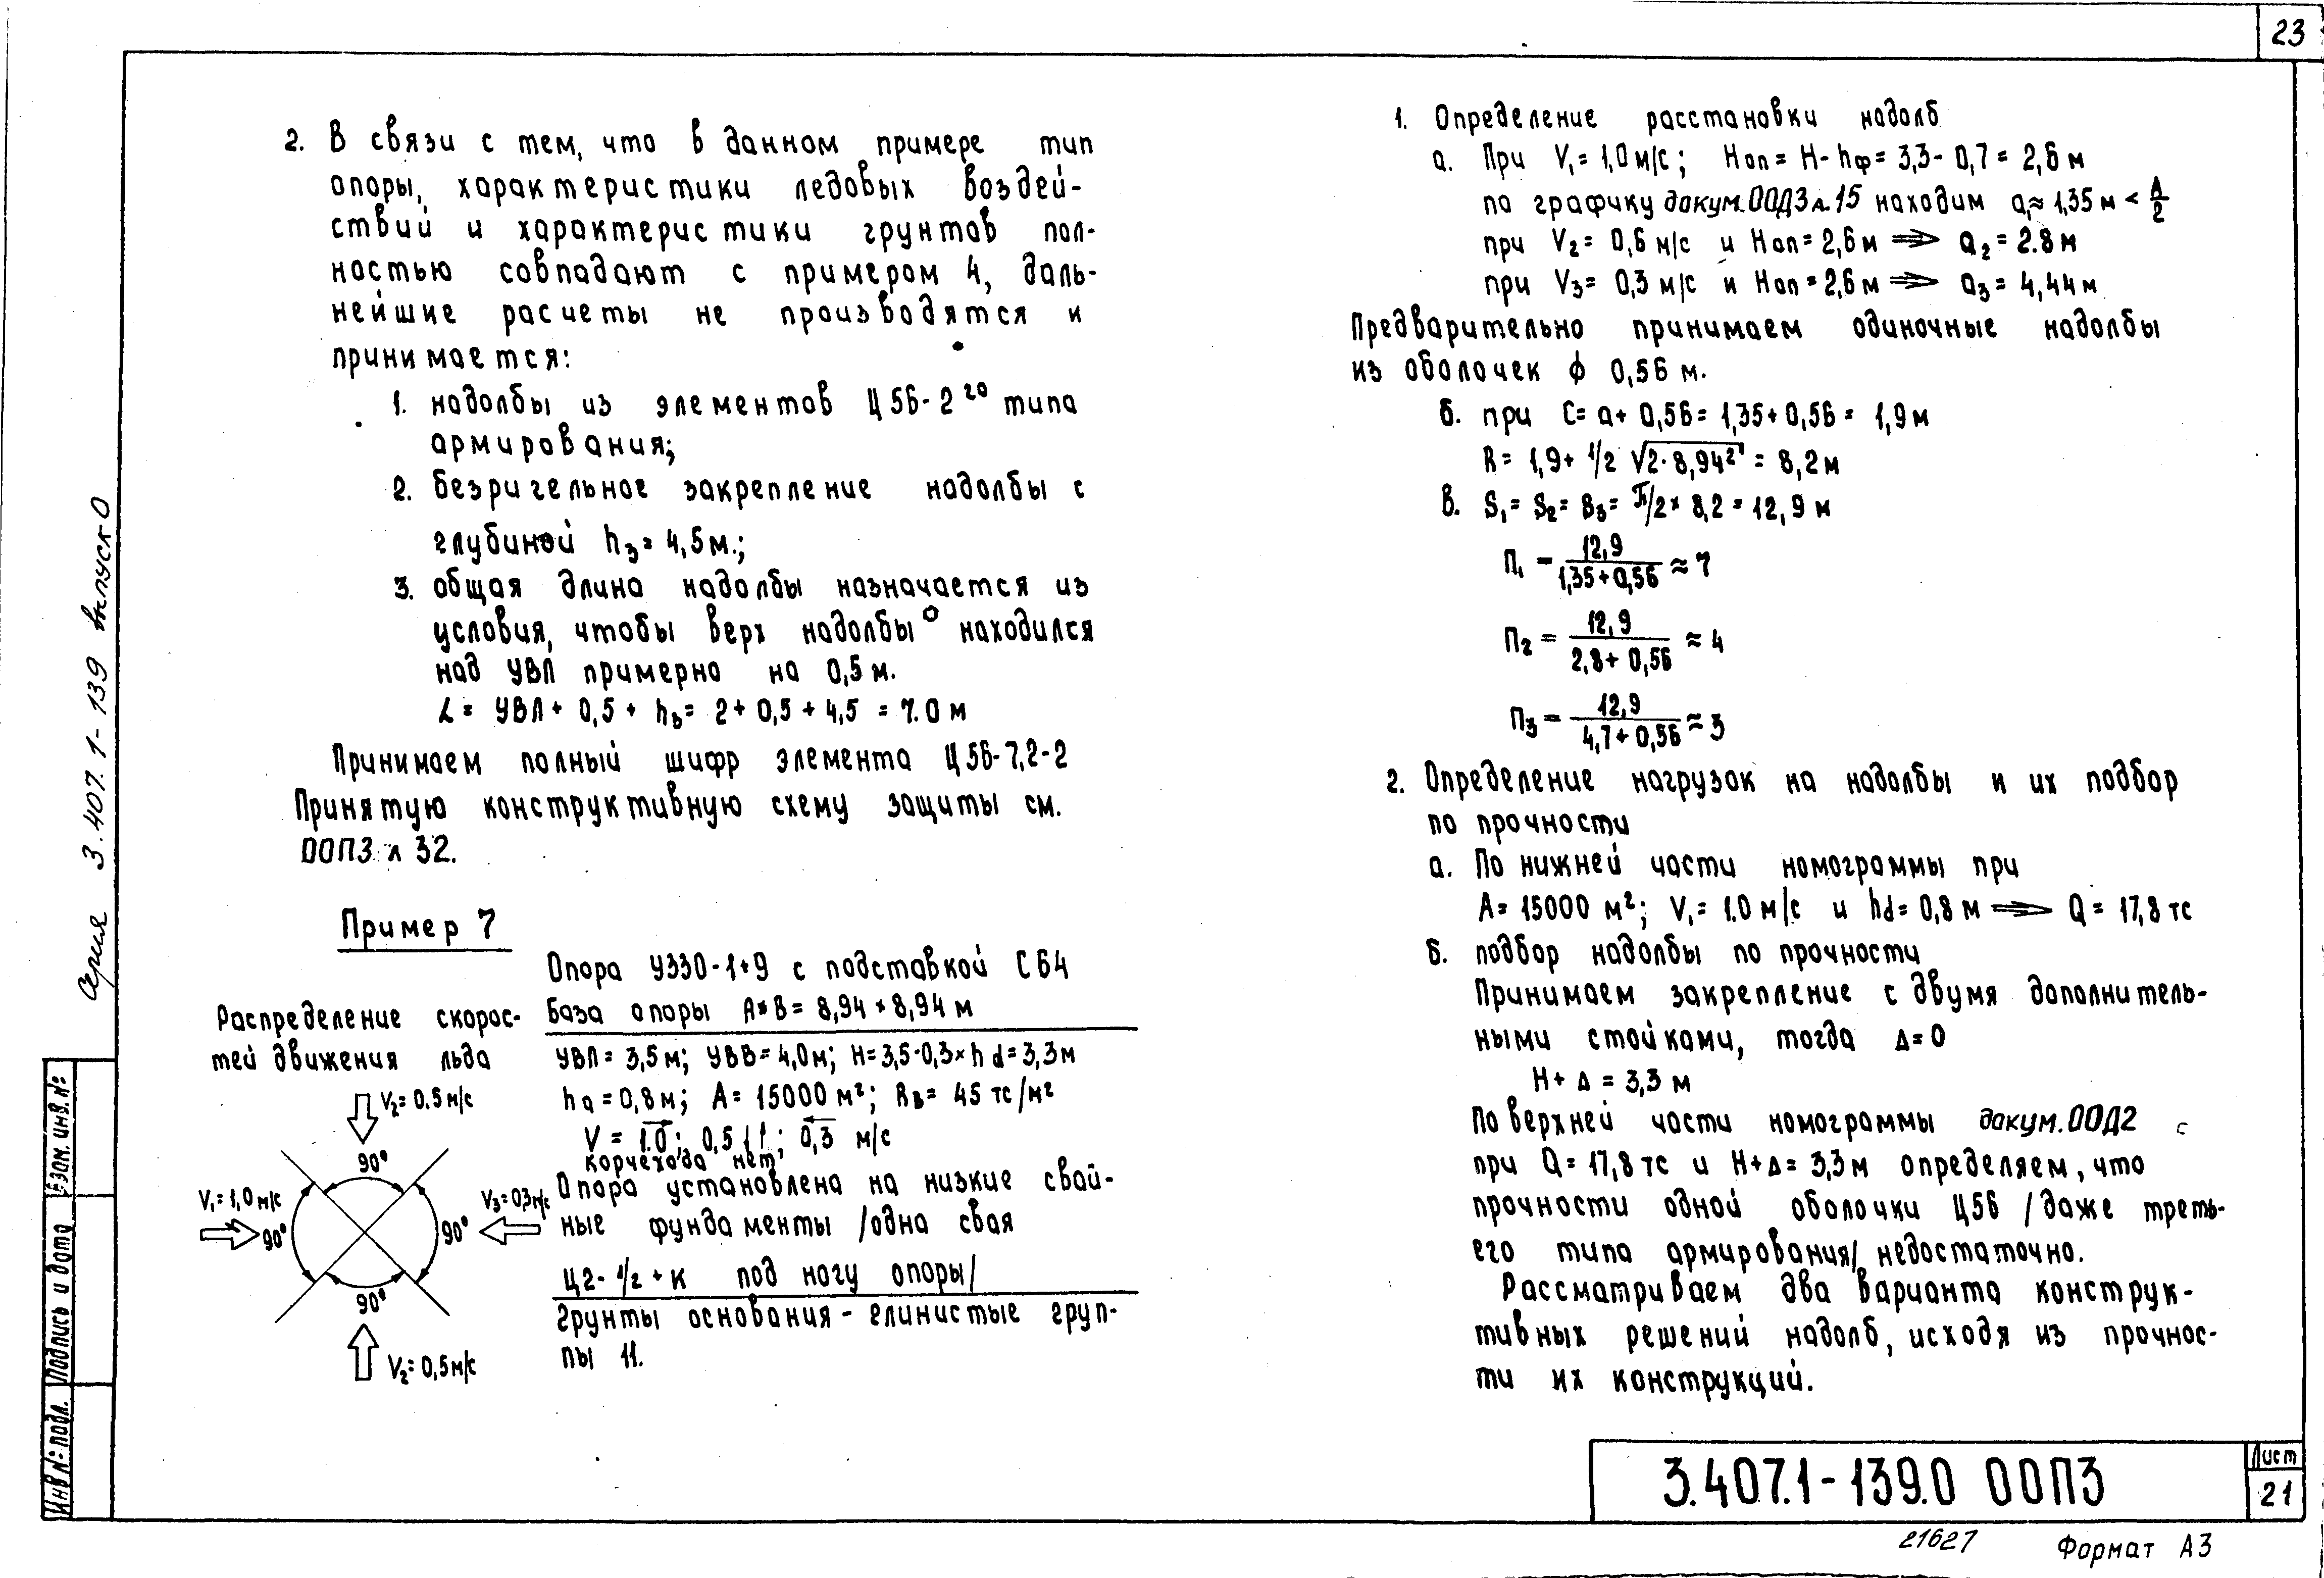 23
2. В связи с тем, что в данном примере тип
опоры, характеристики ледовых воздей-
ствий и характеристики грунтов пол-
ностью совпадают с примером 4, даль-
нейшие расчеты не производятся и
принимается:
1. надолбы из элементов Ц56-2го типа
армирования;
2. безригельное закрепление надолбы с
глубиной hз= 4,5м.;
3. общая длина надолбы назначается из
условия, чтобы верх надолбы находился
над УВЛ примерно на 0,5 м.
L= УВЛ+ 0,5 + hb= 2+ 0,5 + 4,5 = 7.0 м
Принимаем полный шифр элемента Ц56-7,2-2
Принятую конструктивную схему защиты см.
00ПЗ л 32.
Пример 7
Опора У330-1+9 с подставкой С64
База опоры А*В= 8,94 * 8,94 м
Распределение скорос-
тей движения льда
УВЛ= 3,5 м; УВВ= 4,0м; Н=3,5-0,3×hd=3,3м
hd=0,8м; А= 15000 м²; Rв= 45 тс/м²
V = 1.0; 0,5↓↑; 0,3 м/с
корчехода нет
Опора установлена на низкие свай-
ные фундаменты /одна свая
Ц2-1/2+К под ногу опоры/
Грунты основания - глинистые груп-
пы II.
V₂= 0.5 м/с
90°
V₁= 1,0 м/с
90°
V₃= 0,3 м/с
90°
90°
V₂= 0,5 м/с
1. Определение расстановки надолб
а. При V₁= 1,0 м/с; Ноп= Н- hф= 3,3- 0,7 = 2,6 м
по графику докум.00Д3 л.15 находим a₁≈ 1,35 м < A/2
при V₂= 0,6 м/с и Ноп= 2,6 м ⟹ a₂= 2.8 м
при V₃= 0,3 м/с и Ноп= 2,6 м ⟹ a₃= 4,44 м
Предварительно принимаем одиночные надолбы
из оболочек ϕ 0,56 м.
б. при С= a+ 0,56= 1,35+0,56= 1,9 м
R= 1,9+ 1/2 √2·8,94² = 8,2 м
в. S₁= S₂= S₃= π/2× 8,2 = 12,9 м
П₁ = 12,9 / 1,35+0,56 ≈ 7
П₂ = 12,9 / 2,8+ 0,56 ≈ 4
П₃ = 12,9 / 4,7+ 0,56 ≈ 3
2. Определение нагрузок на надолбы и их подбор
по прочности
а. По нижней части номограммы при
А= 15000 м²; V₁= 1.0 м/с и hd= 0,8 м ⟹ Q= 17,8 тс
б. подбор надолбы по прочности
Принимаем закрепление с двумя дополнитель-
ными стойками, тогда Δ= 0
Н+ Δ = 3,3 м
По верхней части номограммы докум.00Д2 с
при Q= 17,8 тс и Н+Δ= 3,3 м определяем, что
прочности одной оболочки Ц56 /даже треть-
его типа армирования/ недостаточно.
Рассматриваем два варианта конструк-
тивных решений надолб, исходя из прочнос-
ти их конструкций.
Серия 3.407.1-139 выпуск 0
Инв №: подл. Подпись и дата Взам. инв. №:
3.407.1-139.0 00ПЗ
Лист
21
21627
Формат А3